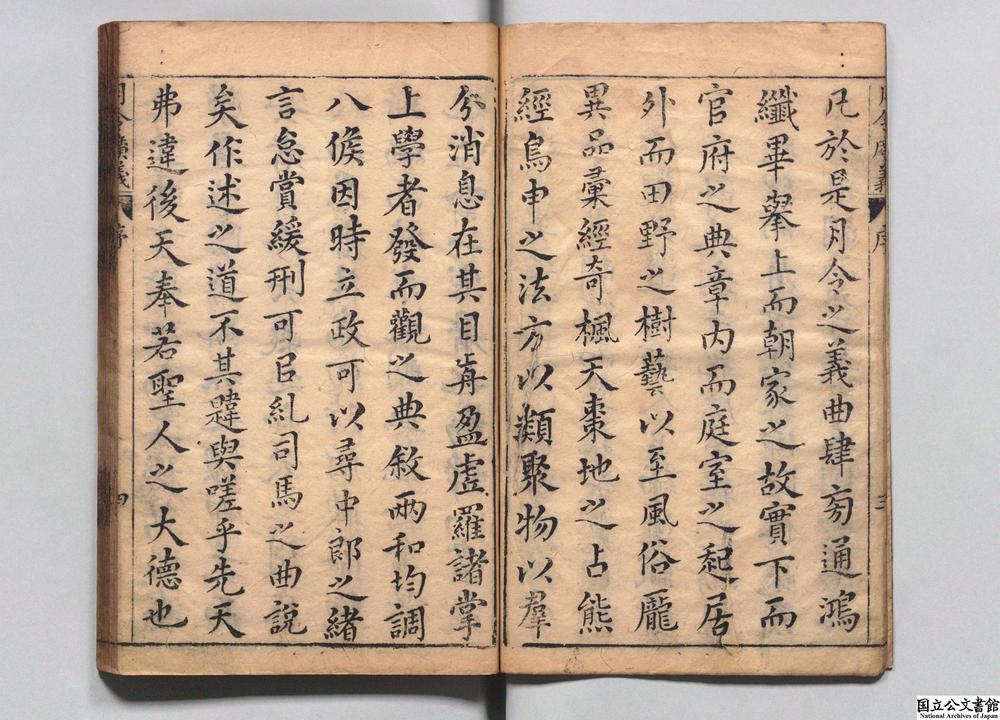 月令廣義 序 三
凡於是月令之義曲肆旁通鴻
纖畢擧上而朝家之故實下而
官府之典章内而庭室之起居
外而田野之樹藝以至風俗龎
異品彙經奇楓天棗地之占熊
經鳥申之法方以類聚物以羣
兮消息在其目歬盈虗羅諸掌
上學者發而觀之典敘兩和均調
八候因時立政可以尋中郎之緒
言怠賞緩刑可㠯糺司馬之曲說
矣作述之道不其韙與嗟乎先天
弗違後天奉若聖人之大德也
月令廣義 序 四
国立公文書館
National Archives of Japan